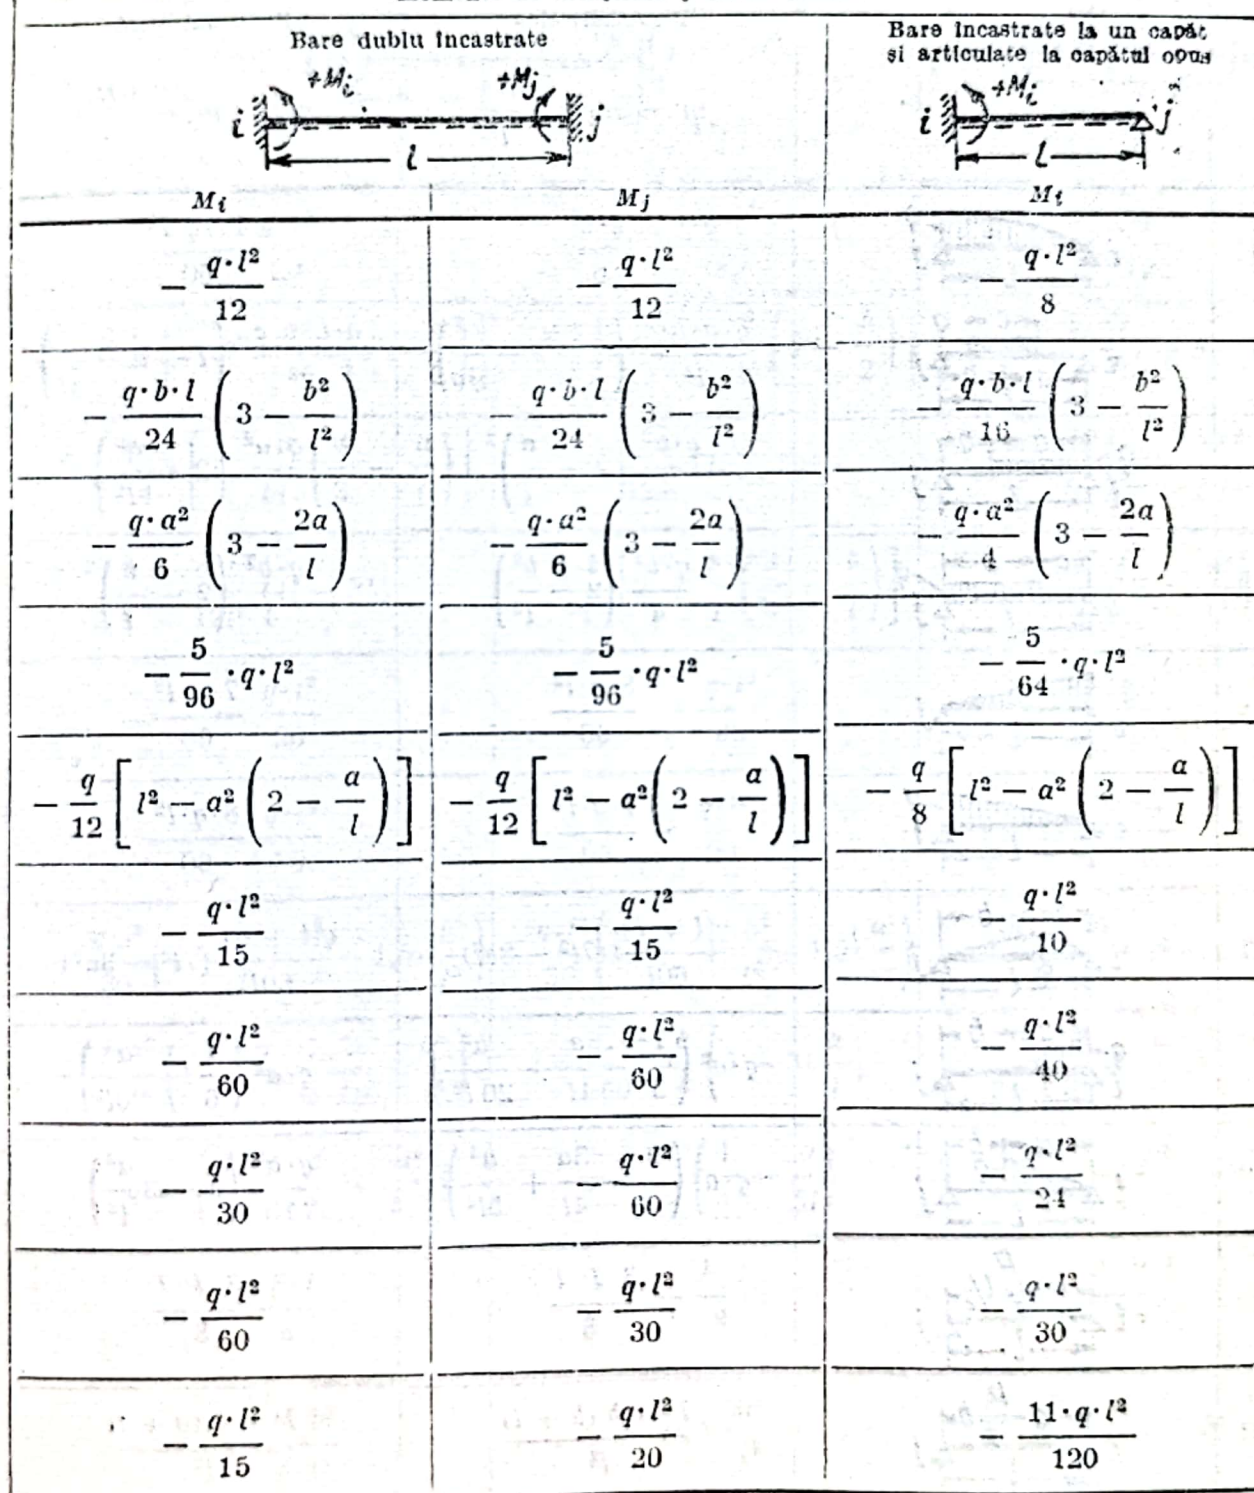 Bare dublu încastrate
Bare încastrate la un capăt
și articulate la capătul opus
+M_i +M_j
i j
l
+M_i
i j
l
M_i M_j M_i
− q·l²/12 − q·l²/12 − q·l²/8
− q·b·l/24 (3 − b²/l²) − q·b·l/24 (3 − b²/l²) − q·b·l/16 (3 − b²/l²)
− q·a²/6 (3 − 2a/l) − q·a²/6 (3 − 2a/l) − q·a²/4 (3 − 2a/l)
− 5/96 ·q·l² − 5/96 ·q·l² − 5/64 ·q·l²
− q/12 [l² − a² (2 − a/l)] − q/12 [l² − a² (2 − a/l)] − q/8 [l² − a² (2 − a/l)]
− q·l²/15 − q·l²/15 − q·l²/10
− q·l²/60 − q·l²/60 − q·l²/40
− q·l²/30 − q·l²/60 − q·l²/24
− q·l²/60 − q·l²/30 − q·l²/30
− q·l²/15 − q·l²/20 − 11·q·l²/120